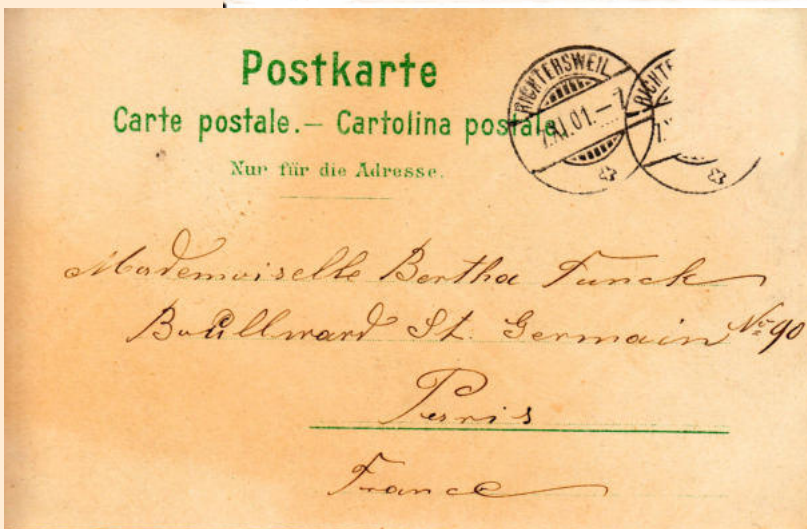 Postkarte
Carte postale.— Cartolina postale.
Nur für die Adresse.
RICHTERSWEIL
7.XI.01.–7
RICHTE
Mademoiselle Bertha Funck
Boullward St. Germain No 90
Paris
France